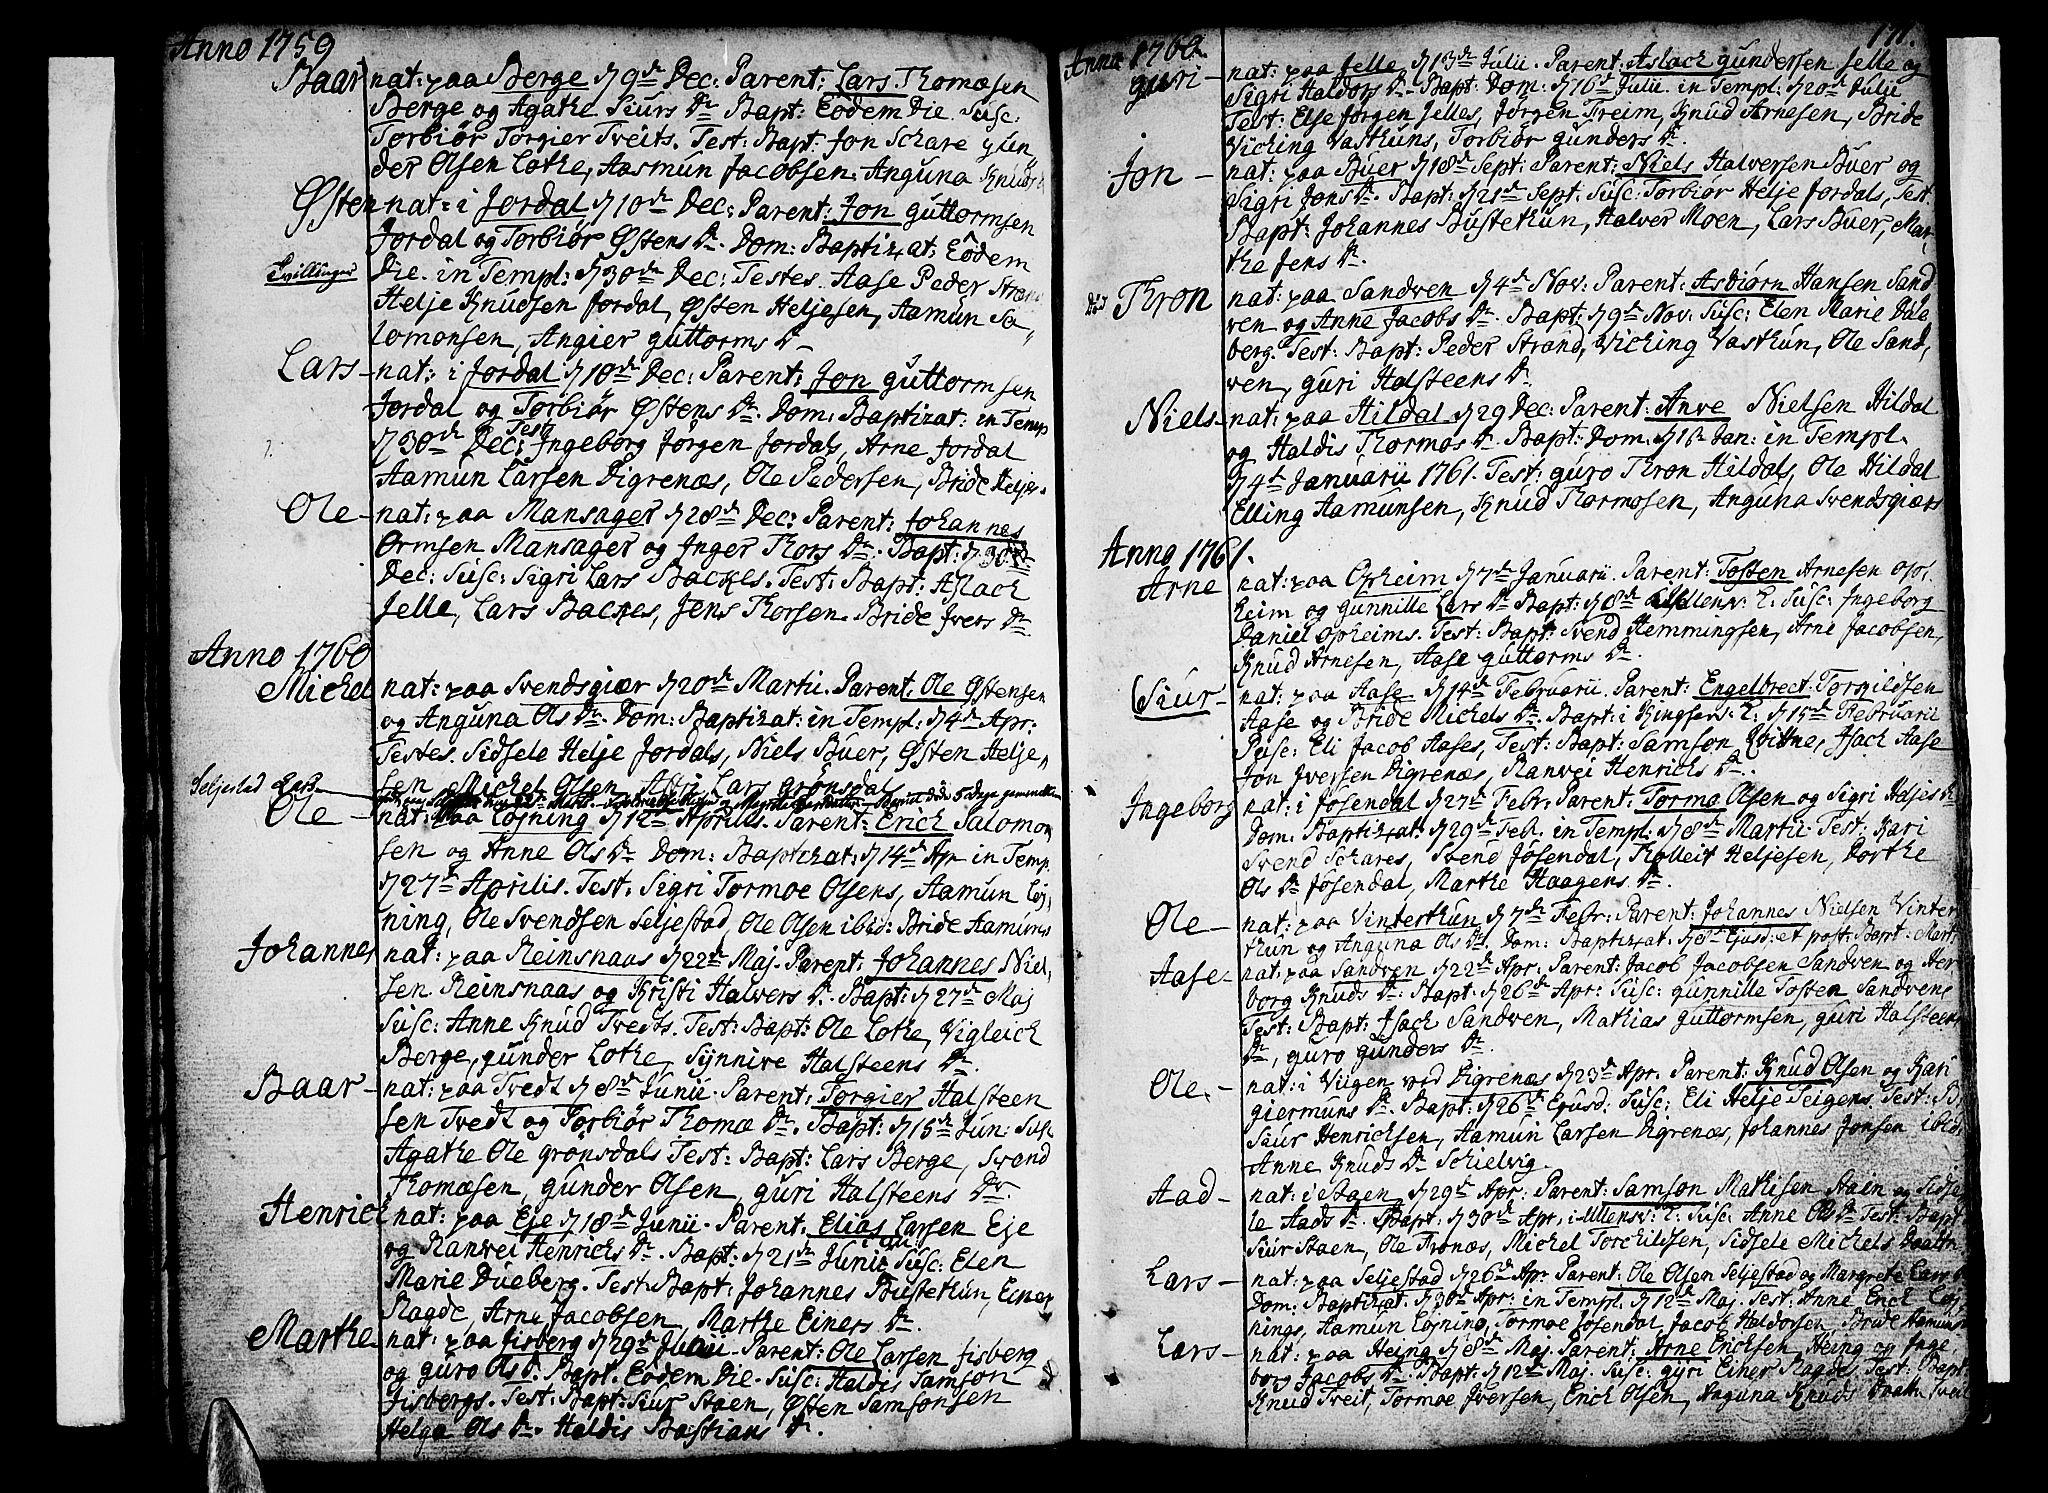 Anno 1759
Baar nat: paa Berge d 9de Dec: Parent: Lars Thomæsen
Berge og Agathe Siurs Dr Bapt: Eodem Die Susc:
Torbiør Torgier Tveits. Test: Bapt: Jon Schare gun
der Olsen Lothe, Aasmun Jacobsen. Anguna Knuds
Østen nat: i Jordal d 10de Dec: Parent: Jon guttormsen
Jordal og Torbiør Østens Dr. Dom: Baptizat: Eodem
Tvillinger Die. in Templ: d 30de Dec: Testes. Aase Peder Strand
Helje Knudsen Jordal, Østen Heljesen, Aamun Sa„
lomonsen, Angier guttorms Dr
Lars – nat: i Jordal d 10de Dec: Parent: Jon guttormsen
Jordal og Torbiør Østens Dr. Dom: Baptizat: in Temp
d 30de Dec: Test: Ingeborg Jørgen Jordals, Arne Jordal
Aamun Larsen Digrenæs, Ole Pedersen, Bride Heljes.
Ole – nat: paa Mansager d 28de Dec: Parent: Johannes
Ormsen Mansager og Inger Thors Dr. Bapt: d 30te
Dec: Susc: Sigri Lars Backes. Test: Bapt: Aslach
Jelle, Lars Backes, Jens Thorsen. Bride Ivers Dr
Anno 1760
Michel nat: paa Svendsgiær d 20de Martii. Parent: Ole Østensen
og Anguna Ols Dr. Dom: Baptizat: in Templ: d 4de Apr:
Testes. Sidsele Helje Jordals, Niels Buer, Østen Helje„
sen Michel Olsen, Lars Grønsdal
Seljestad Lars
Ole – nat: paa Løyning d 12te Aprilis. Parent: Erich Salomon
sen og Anne Ols Dr Dom: Baptizat: d 14de Apr in Temp.
d 27de Aprilis. Test: Sigri Tormoe Olsens, Aamun Løj„
ning, Ole Svendsen Seljestad, Ole Olsen ibid: Bride Aamuns
Johannes nat: paa Reinsnaas d 22de Maj. Parent: Johannes Niel„
sen Reinsnaas og Kristi Halvers Dr. Bapt: d 27de Maj
Susc: Anne Knud Tveits. Test: Bapt: Ole Lothe, Vigleich
Berge, gunder Lothe, Synnive Halsteens Dr.
Baar – nat: paa Tvedt d 8de Junii. Parent: Torgier Halsteen
sen Tvedt og Torbiør Thomæ Dr. Bapt: d 15de Jun: Susc
Agathe Ole Grønsdals Test: Bapt: Lars Berge, Svend
Thomæsen, gunder Olsen, guri Halsteens Dr.
Henrich nat: paa Eje d 18de Junii. Parent: Elias Larsen Eje
og Ranvei Henrichs Dr. Bapt: d 21de Junii Susc: Elen
Marie Dueberg. Test: Bapt: Johannes Bustethun, Einer
Ragde, Arne Jacobsen, Marthe Einers Dr.
Marthe nat: paa Jisberg d 29de Junii. Parent: Ole Larsen Jisberg
og guro Ols D. Bapt. Eodem Die. Susc: Haldis Samson
Jisbergs. Test: Bapt: Siur Staen, Østen Samsonsen
Helga Ols Dr. Haldis Bastians Dr.
Anno 1760. 171.
guri – nat: paa Jelle d 13de Julii. Parent: Aslach gundersen Jelle og
Sigri Haldors Dr. Bapt: Dom: d 16de Julii. in Templ: d 20de Julii
Test: Else Jørgen Jelles, Jørgen Freim, Knud Arnesen, Bride
Viching Vasthuns, Torbiør gunders Dr.
Jon – nat: paa Buer d 18de Sept: Parent: Niels Halversen Buer og
Sigri Jons Dr. Bapt: d 21de Sept: Susc: Torbiør Helje Jordals, Test
Bapt: Johannes Bustethun, Halver Moen, Lars Buer, Mar„
the Jens Dr.
død Thron nat: paa Sandven d 4de Nov: Parent: Asbiørn Hansen Sand
ven og Anne Jacobs Dr. Bapt: d 9de Nov: Susc: Elen Marie Due
berg. Test: Bapt: Peder Strand, Viching Vasthun, Ole Sand„
ven, guri Halsteens Dr.
Niels – nat: paa Hildal d 29 Dec: Parent: Anve Nielsen Hildal
og Haldis Thormos Dr. Bapt: Dom: d 1te Jan: in Templ.
d 4de Januarii 1761. Test: guro Thron Hildals, Ole Hildal
Elling Aamunsen, Knud Thormosen, Anguna Svendsgiærs
Anno 1761.
Arne nat: paa Opheim d 7de Januarii. Parent: Tosten Arnesen op„
heim og gunnille Lars Dr. Bapt: d 8de Ullensv: E: Susc: Ingeborg
Daniel opheims. Test: Bapt: Svend Hemmingsen, Arne Jacobsen,
Knud Arnesen, Aase guttorms Dr.
Siur – nat: paa Aase d 14de Februarii. Parent: Engelbrect Torgildsen
Aase og Bride Michels Dr. Bapt: i Kingserv: E: d 15de Februarii
Susc: Eli Jacob Aases, Test: Bapt: Samson Qvittne, Isach Aase
Jon Iversen Digrenæs, Ranvei Henrichs Dr.
Ingeborg nat: i Jøsendal d 27de Febr: Parent: Tormo Olsen og Sigri Heljes Dr
Dom: Baptizat: d 29de Feb. in Templ: d 8de Martii. Test: Kari
Svend Schares, Svend Jøsendal, Tholleif Heljesen, Dorthe
Ols Dr Jøsendal, Marthe Haagens Dr.
Ole – nat: paa Vinterthun d 7de Febr: Parent: Johannes Nielsen Vinter
thun og Anguna Ols Dr. Dom: Baptizat: d 8de Ejusd: et post: Bapt: Mart
Aase – nat: paa Sandven d 22de Apr: Parent: Jacob Jacobsen Sandven og Her
borg Knuds Dr: Bapt: d 26de Apr: Susc: gunnille Tosten Sandvens
Test: Bapt: Isach Sandven, Mathias guttormsen, guri Halsteens
Dr, guro gunders Dr.
Ole. – nat: i Viigen ved Digrenæs d 23de Apr. Parent: Knud Olsen og Kari
giermuns Dr. Bapt: d 26de Ejusd: Susc: Eli Helje Teigens. Test: B.
Siur Henrichsen, Aamun Larsen Digrenæs, Johannes Jonsen ibid.
Anne Knuds Dr Schielvig.
Aad – nat: i Staen d 29de Apr: Parent: Samson Mathisen Staen og Sidse
le Aads Dr. Bapt: d 30de Apr, i Ullensv: E: Susc: Anne Ols Dr Test: Bapt
Siur Staen, Ole Tronæs, Michel Torchildsen, Sidsele Michels Daattr
Lars – nat: paa Seljestad d 26de Apr: Parent: Ole Olsen Seljestad og Margrete Lars
Dom: Baptizat: d 30de Apr: in Templ: d 12de Maj. Test: Anne Erich Løj
nings, Aamun Løjning, Tormoe Jøsendal, Jacob Haldorsen, Bride Aamuns
Lars – nat: paa Heing d 8de Maj. Parent: Arne Erichsen Heing og Inge
borg Jacobs Dr. Bapt: d 12de Maj. Susc: gyri Einer Ragdes. Test: Bapt:
Knud Tveit, Tormoe Iversen, Erich Olsen, Naguna Knuds Daattr Tveit